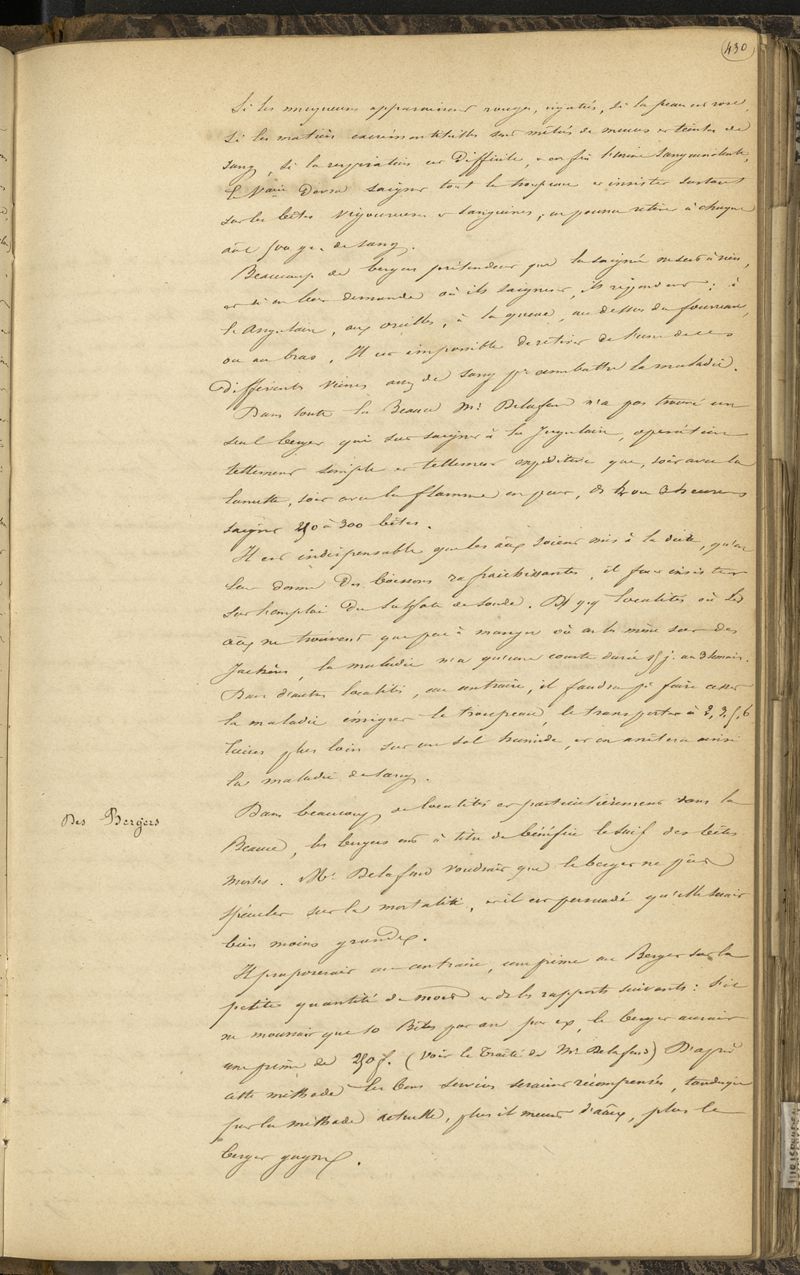 430
Si les muqueuses apparaissent rouges, injectées, si la peau est rose,
Si les matières excrémentitielles sont mêlées de mucus et teintes de
sang, si la respiration est difficile, enfin l'urine sanguinolente,
le Vre devra saigner tout le troupeau et insister surtout
sur les bêtes vigoureuses et sanguines; on pourra retirer à chaque
aal 500 gr. de sang.
Beaucoup de bergers prétendent que la saignée ne sert à rien,
et si on leur demande où ils saignent, ils répondent: à
l'angulaire, aux oreilles, à la queue, au dessus du fourreau,
ou au bras. Il est impossible de retirer de l'une de ces
différentes veines assez de sang pr combattre la maladie.
Dans toute la Beauce Mr Delafond n'a pas trouvé un
seul berger qui sut saigner à la Jugulaire, opération
tellement simple et tellement expéditive que, soit avec la
lancette, soit avec la flamme on peut, en 2 ou 3 heures
saigner 250 à 300 bêtes.
Il est indispensable que les aaux soient mis à la diète, qu'on
leur donne des boissons rafraichissantes, il faut insister
sur l'emploi du sulfate de soude. Il y a localités où les
aaux ne trouvent que peu à manger où on les mène sur des
Jachères, la maladie n'a qu'une courte durée 15 j. ou 3 semain.
Dans d'autres localités, au contraire, il faudra pr faire cesser
la maladie émigrer le troupeau, le transporter à 2, 3, 5, 6
lieues plus loin sur un sol humide, et on arrêtera ainsi
la maladie de sang.
Des Bergers
Dans beaucoup de localités et particulièrement dans la
Beauce, les bergers ont à titre de bénéfice le suif des bêtes
mortes. Mr Delafond voudrait que le berger ne pût
spéculer sur la mortalité, et il est persuadé qu'elle serait
bien moins grande.
Il proposerait au contraire, une prime au Berger sur la
petite quantité de morts et de les rapports suivants: s'il
ne mourrait que 10 Bêtes par an par ex, le berger aurait
une prime de 250 f. (Voir le Traité de Mr Delafond) D'après
cette méthode les bons services seraient récompensés, tandis que
par la méthode actuelle, plus il meurt d'aaux, plus le
berger gagne.